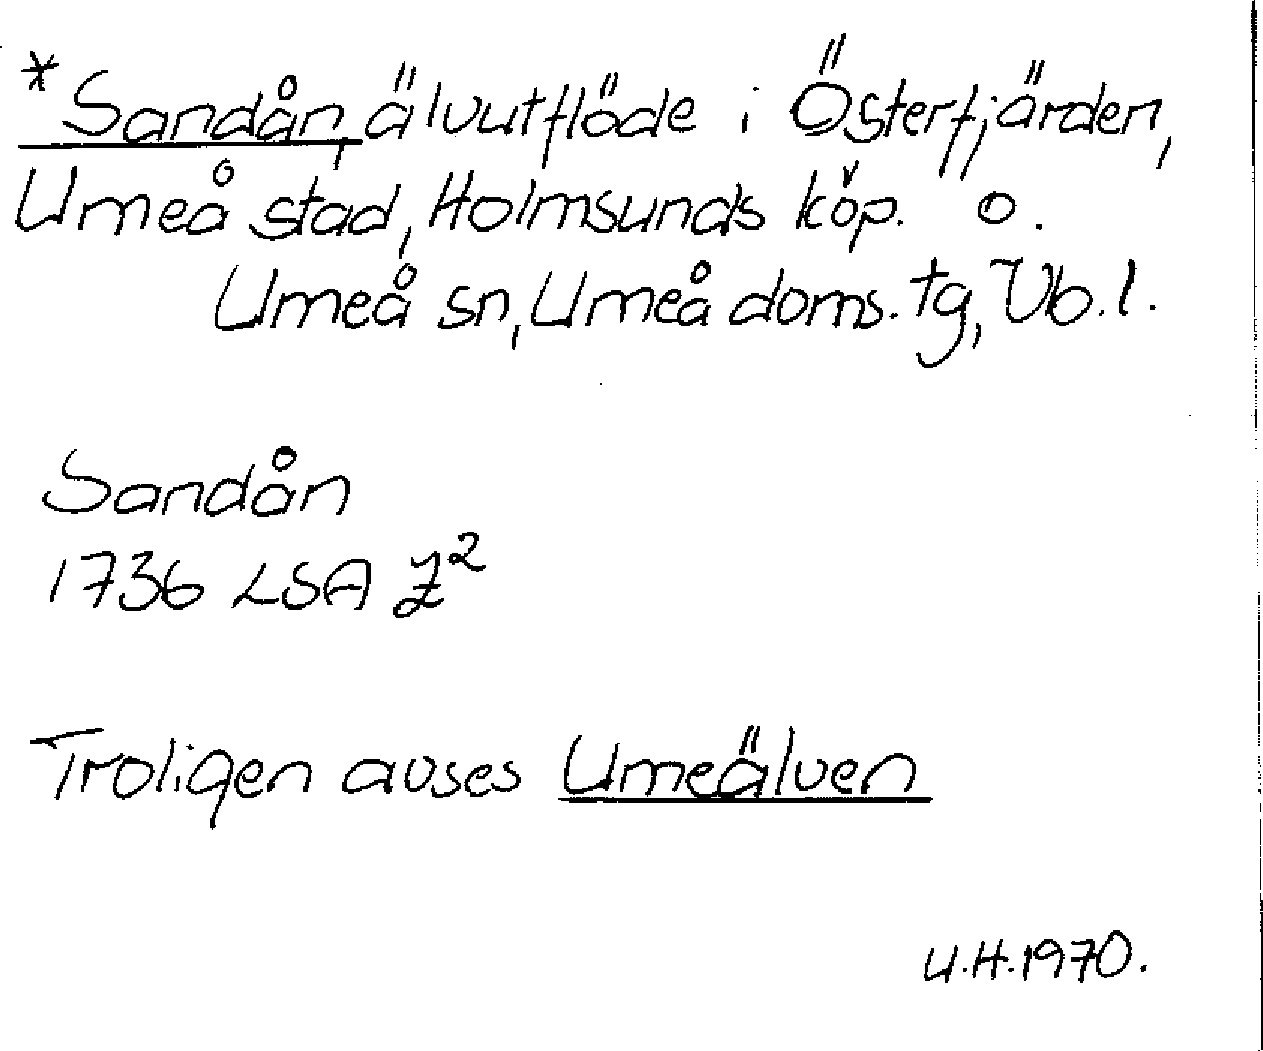 *Sandån, älvutflöde i Österfjärden,
Umeå stad, Holmsunds köp. o.
Umeå sn, Umeå doms. tg, Vb. l.
Sandån
1736 LSA Z²
Troligen avses Umeälven
U.H. 1970.